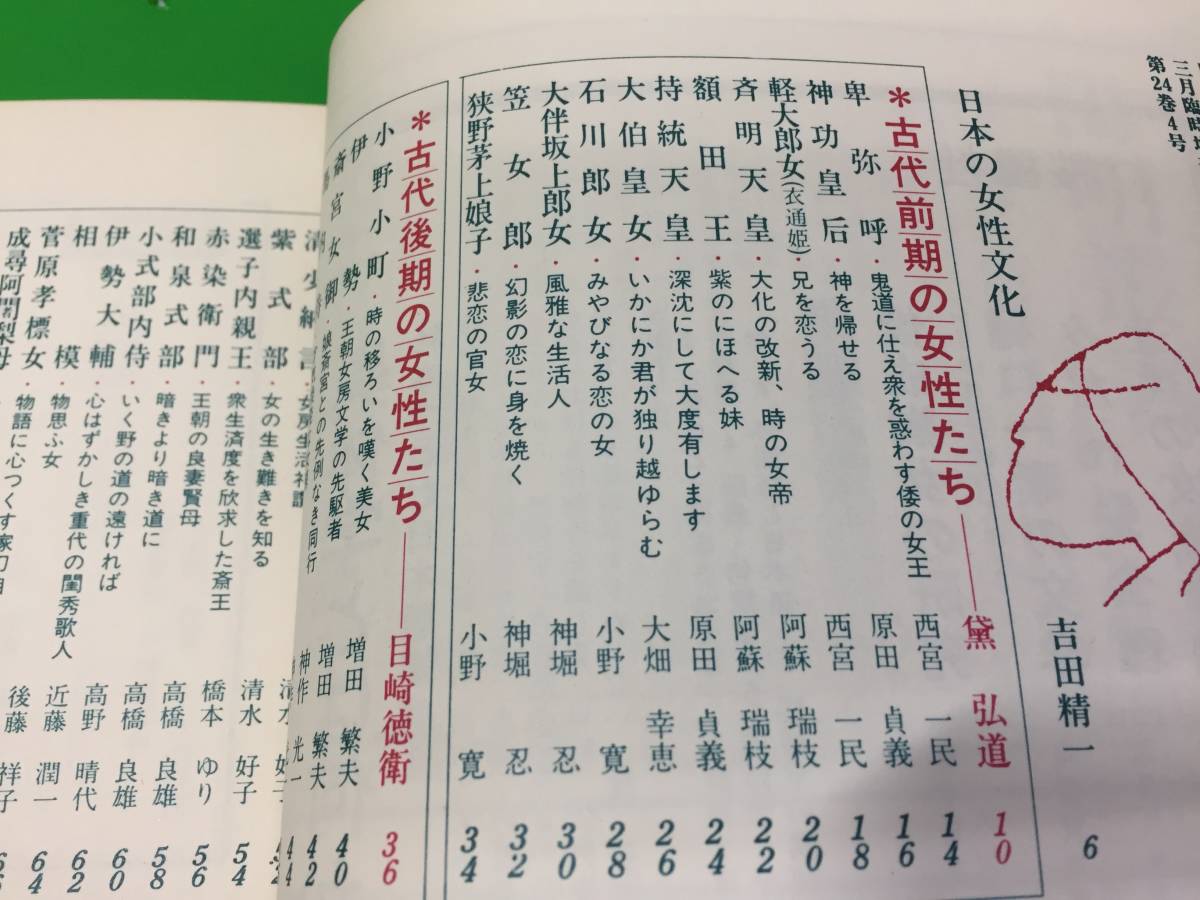 三月臨時
第24巻4号
日本の女性文化 吉田精一 6
*古代前期の女性たち――黛 弘道 10
卑弥呼・鬼道に仕え衆を惑わす倭の女王 西宮 一民 14
神功皇后・神を帰せる 原田 貞義 16
軽大郎女(衣通姫)・兄を恋うる 西宮 一民 18
斉明天皇・大化の改新、時の女帝 阿蘇 瑞枝 20
額田王・紫のにほへる妹 阿蘇 瑞枝 22
持統天皇・深沈にして大度有します 原田 貞義 24
大伯皇女・いかにか君が独り越ゆらむ 大畑 幸恵 26
石川郎女・みやびなる恋の女 小野 寛 28
大伴坂上郎女・風雅な生活人 神堀 忍 30
笠女郎・幻影の恋に身を焼く 神堀 忍 32
狭野茅上娘子・悲恋の官女 小野 寛 34
*古代後期の女性たち――目崎徳衛 36
小野小町・時の移ろいを嘆く美女 増田 繁夫 40
伊勢・王朝女房文学の先駆者 増田 繁夫 42
斎宮女御・娘斎宮との先例なき同行 神作 光一 44
清少納言・女房生活礼讃 清水 好子 52
紫式部・女の生き難きを知る 清水 好子 54
選子内親王・衆生済度を欣求した斎王 橋本 ゆり 56
赤染衛門・王朝の良妻賢母 高橋 良雄 58
和泉式部・暗きより暗き道に 高橋 良雄 60
小式部内侍・いく野の道の遠ければ 高野 晴代 62
伊勢大輔・心はずかしき重代の閨秀歌人 近藤 潤一 64
相模・物思ふ女 後藤 祥子
菅原孝標女・物語に心つくす家刀自
成尋阿闍梨母